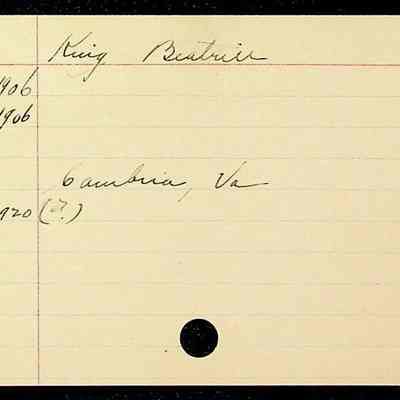 King Beatrice
1906
1906
Cambria, Va
1920 (?)